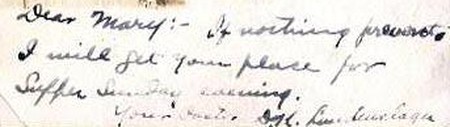 Dear Mary:- If nothing prevents
I will get your place for
Supper Sunday evening.
Your